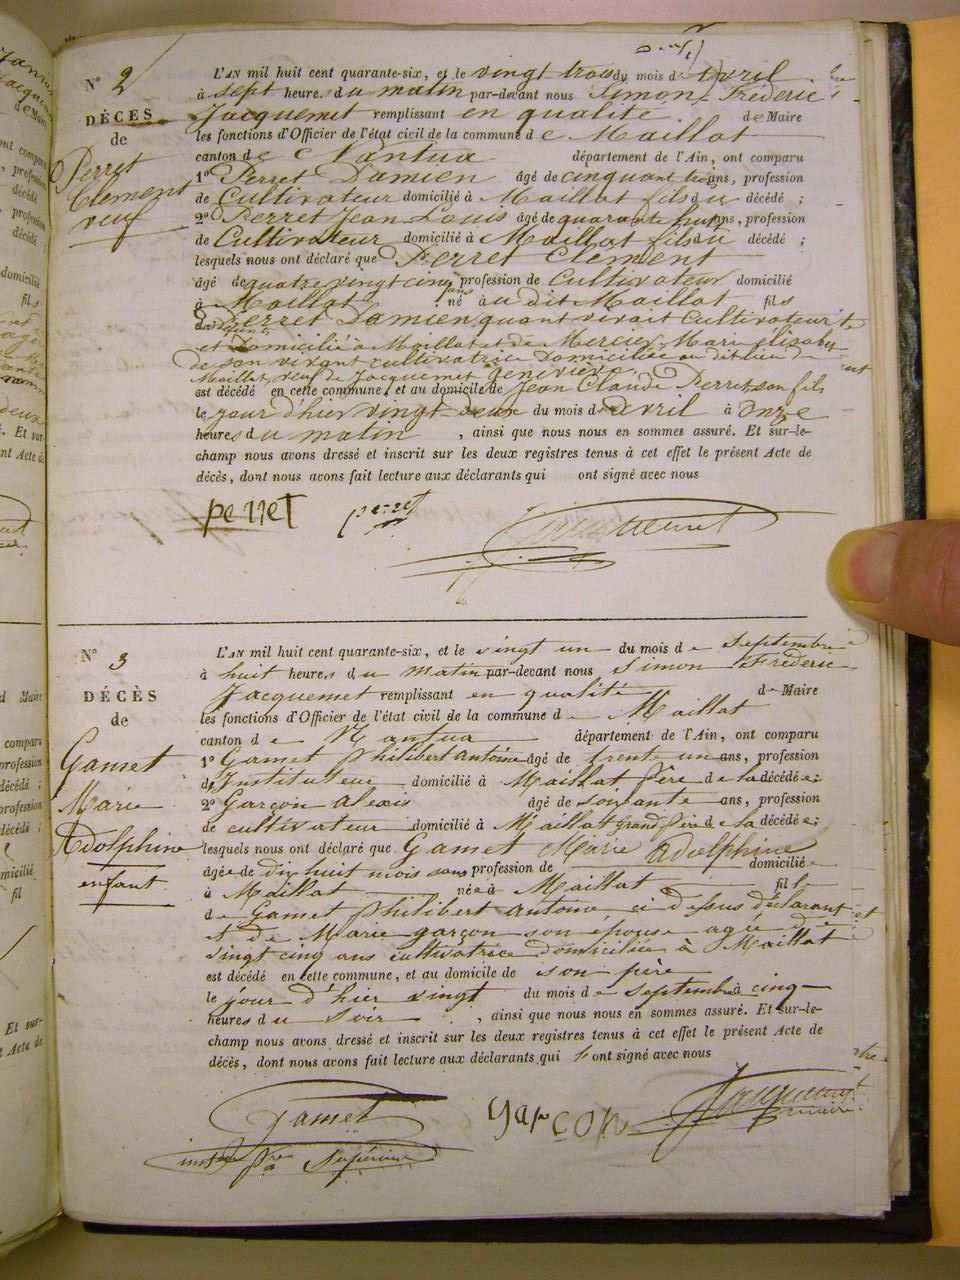 N° 2
DÉCÈS
de
Perret
Clement
veuf
L'AN mil huit cent quarante-six, et le vingt trois du mois d'avril
à sept heures du matin par-devant nous Simon Fréderic
Jacquemet remplissant en qualité de Maire
les fonctions d'Officier de l'état civil de la commune de Maillat
canton de Nantua département de l'Ain, ont comparu
1° Perret Damien âgé de cinquante ans, profession
de Cultivateur domicilié à Maillat fils du décédé ;
2° Perret Jean Louis âgé de quarante huit ans, profession
de Cultivateur domicilié à Maillat fils du décédé ;
lesquels nous ont déclaré que Perret Clement
âgé de quatre vingt cinq ans profession de Cultivateur domicilié
à Maillat né à au dit Maillat fils
de Perret Damien quant vivait Cultivateur
et Domicilié à Maillat et de Mercier Marie Elisabet
de son vivant cultivatrice Domiciliée au dit lieu de
Maillat, veuf de Jacquemet Genevieve
est décédé en cette commune, et au domicile de Jean Claude Perret son fils
le jour d'hier vingt deux du mois d'avril à onze
heures du matin , ainsi que nous nous en sommes assuré. Et sur-le-
champ nous avons dressé et inscrit sur les deux registres tenus à cet effet le présent Acte de
décès, dont nous avons fait lecture aux déclarants qui ont signé avec nous
perret perret Jacquemet
N° 3
DÉCÈS
de
Gamet
Marie
Adolphine
enfant
L'AN mil huit cent quarante-six, et le vingt un du mois de septembre
à huit heures du matin par-devant nous Simon Fréderic
Jacquemet remplissant en qualité de Maire
les fonctions d'Officier de l'état civil de la commune de Maillat
canton de Nantua département de l'Ain, ont comparu
1° Gamet Philibert Antoine âgé de trente un ans, profession
de Instituteur domicilié à Maillat père de la décédée ;
2° Garçon Alexis âgé de soixante ans, profession
de cultivateur domicilié à Maillat grand père de la décédée ;
lesquels nous ont déclaré que Gamet Marie Adolphine
âgée de dix huit mois sans profession de domiciliée
à Maillat née à Maillat fille
de Gamet Philibert Antoine ci dessus déclarant
et de Marie garçon son épouse agée de
vingt cinq ans cultivatrice domiciliée à Maillat
est décédé en cette commune, et au domicile de son père
le jour d'hier vingt du mois de septembre à cinq
heures du soir , ainsi que nous nous en sommes assuré. Et sur-le-
champ nous avons dressé et inscrit sur les deux registres tenus à cet effet le présent Acte de
décès, dont nous avons fait lecture aux déclarants qui ont signé avec nous
Gamet garçon Jacquemet
Supérieur maire